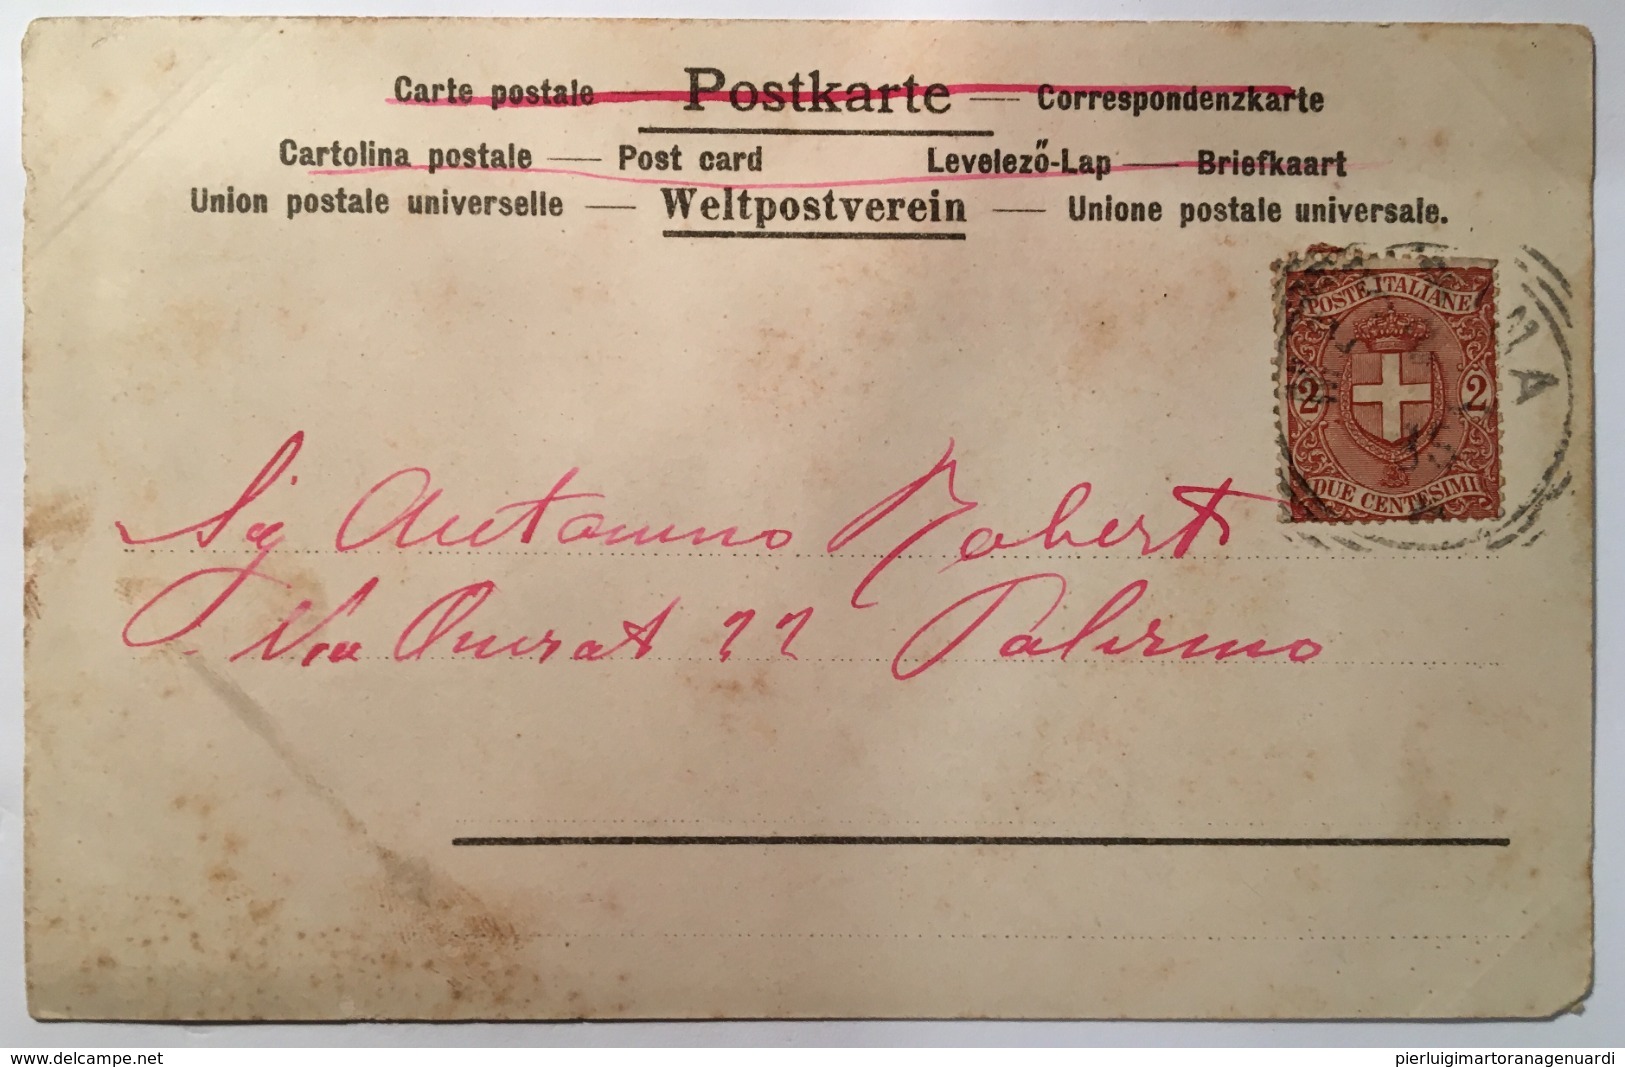 Carte postale — Postkarte — Correspondenzkarte
Cartolina postale — Post card Levelező-Lap — Briefkaart
Union postale universelle — Weltpostverein — Unione postale universale.
POSTE ITALIANE
2 2
DUE CENTESIMI
Sig Antonino
Via 22 Palermo
www.delcampe.net
pierluigimartoranagenuardi